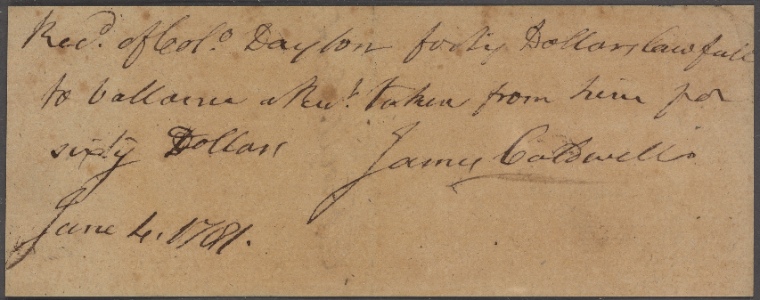 Recd. of Colo. Dayton forty Dollars lawfull
to ballance a Rect. taken from him for
sixty Dollars James Caldwell
June 4. 1781.